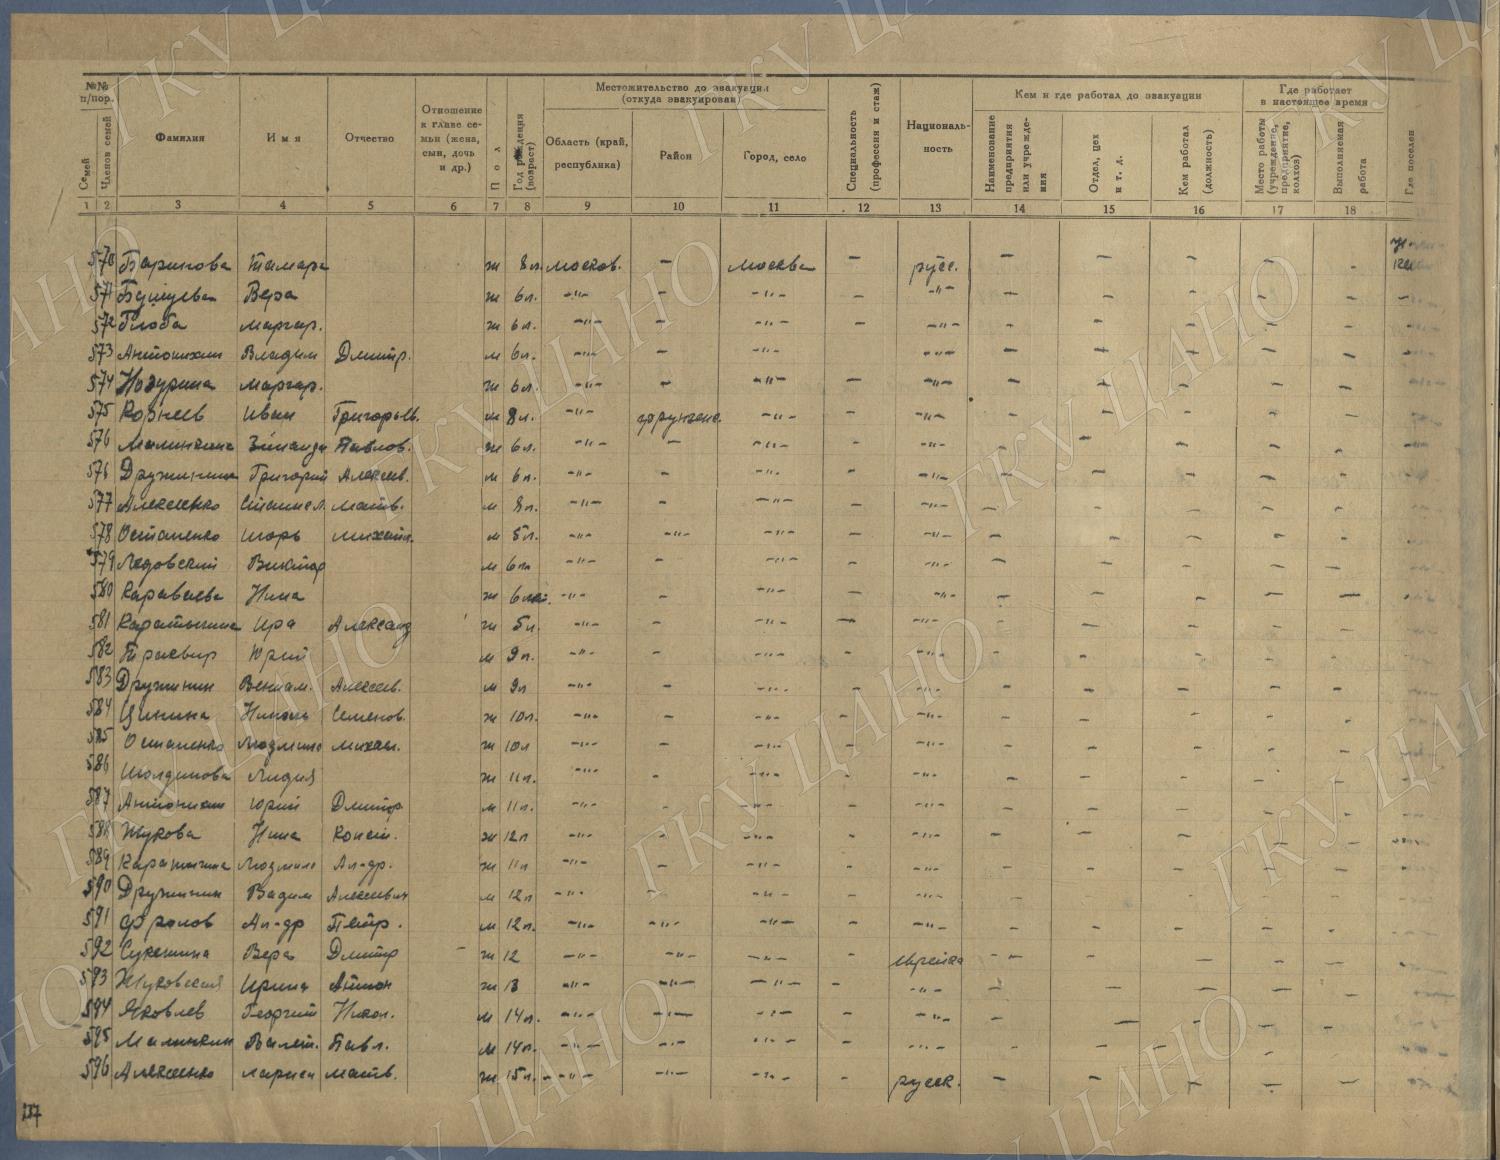 №№ п/пор.
Семей
Членов семей
Фамилия
Имя
Отчество
Отношение к главе семьи (жена, сын, дочь и др.)
Пол
Год рождения (возраст)
Местожительство до эвакуации (откуда эвакуирован)
Область (край, республика)
Район
Город, село
Специальность (профессия и стаж)
Националь-ность
Кем и где работал до эвакуации
Наименование предприятия или учрежде-ния
Отдел, цех и т. д.
Кем работал (должность)
Где работает в настоящее время
Место работы (учреждение, предприятие, колхоз)
Выполняемая работа
Где поселен
1 2 3 4 5 6 7 8 9 10 11 12 13 14 15 16 17 18
570 Баринова Тамара ж 8 л. москов. — москва — русс. — — — — -
571 Вера ж 6 л. -"- — -"- — -"- — — — — — —
572 Глоба маргар. ж 6 л. -"- — -"- — -"- — — — — — —
573 Владим Дмитр. м 6 л. -"- — -"- -"- — — — — — —
574 маргар. ж 6 л. -"- — -"- — -"- — — — — — —
575 Корнеев Иван Григорьев. м 8 л. -"- -"- — -"- — — — — — —
576 Малинкина Зинаида Павлов. ж 6 л. -"- — -"- — -"- — — — — — —
576 Дружинин Григорий Алексеев. м 6 л. -"- — -"- — -"- — — — — —
577 Алексеенко матв. м 8 л. -"- — -"- — -"- — — — — —
578 Остапенко Игорь михайл. м 5 л. -"- -"- -"- — -"- — — — — —
579 Ледовский Виктор м 6 л -"- — -"- — -"- — — — — —
580 Караваева Нина ж 6 лет. -"- — -"- — -"- — — — — —
581 Каратыгина Ира Александ ж 5 л. -"- — -"- — -"- — — — — —
582 Юрий м 9 л. -"- — -"- — -"- — — — — —
583 Дружинин Вениам. Алексеев. м 9 л -"- — -"- — -"- — — — — —
584 Цинина Семенов. ж 10 л. -"- — -"- — -"- — — — — —
585 Остапенко Людмила михай. ж 10 л -"- — -"- — -"- — — — — —
586 Лидия ж 11 л. -"- — -"- — -"- — — — — —
587 Юрий Дмитр м 11 л. -"- — -"- — -"- — — — — —
588 Жукова Нина Конст. ж 12 л -"- — -"- — -"- — — — — —
589 Каратыгина Людмила Ал-др. ж 11 л -"- — -"- — -"- — — — — —
590 Дружинин Вадим Алексеевич м 12 л -"- — -"- — -"- — — — — —
591 Фролов Ал-др Петр. м 12 л. -"- -"- -"- — -"- — — — — —
592 Вера Дмитр ж 12 -"- -"- -"- — еврейка — — — — —
593 Жуковская Ирина Антон ж 13 -"- -"- -"- — -"- — — — — —
594 Яковлев Георгий Никол. м 14 л. -"- -"- -"- — -"- — — — — —
595 Малинкин Валент. Павл. м 14 л. -"- -"- -"- — -"- — — — — —
596 Алексеенко Лариса матв. ж 15 л. -"- -"- -"- — русск. — — — — —
ГКУ ЦАНО